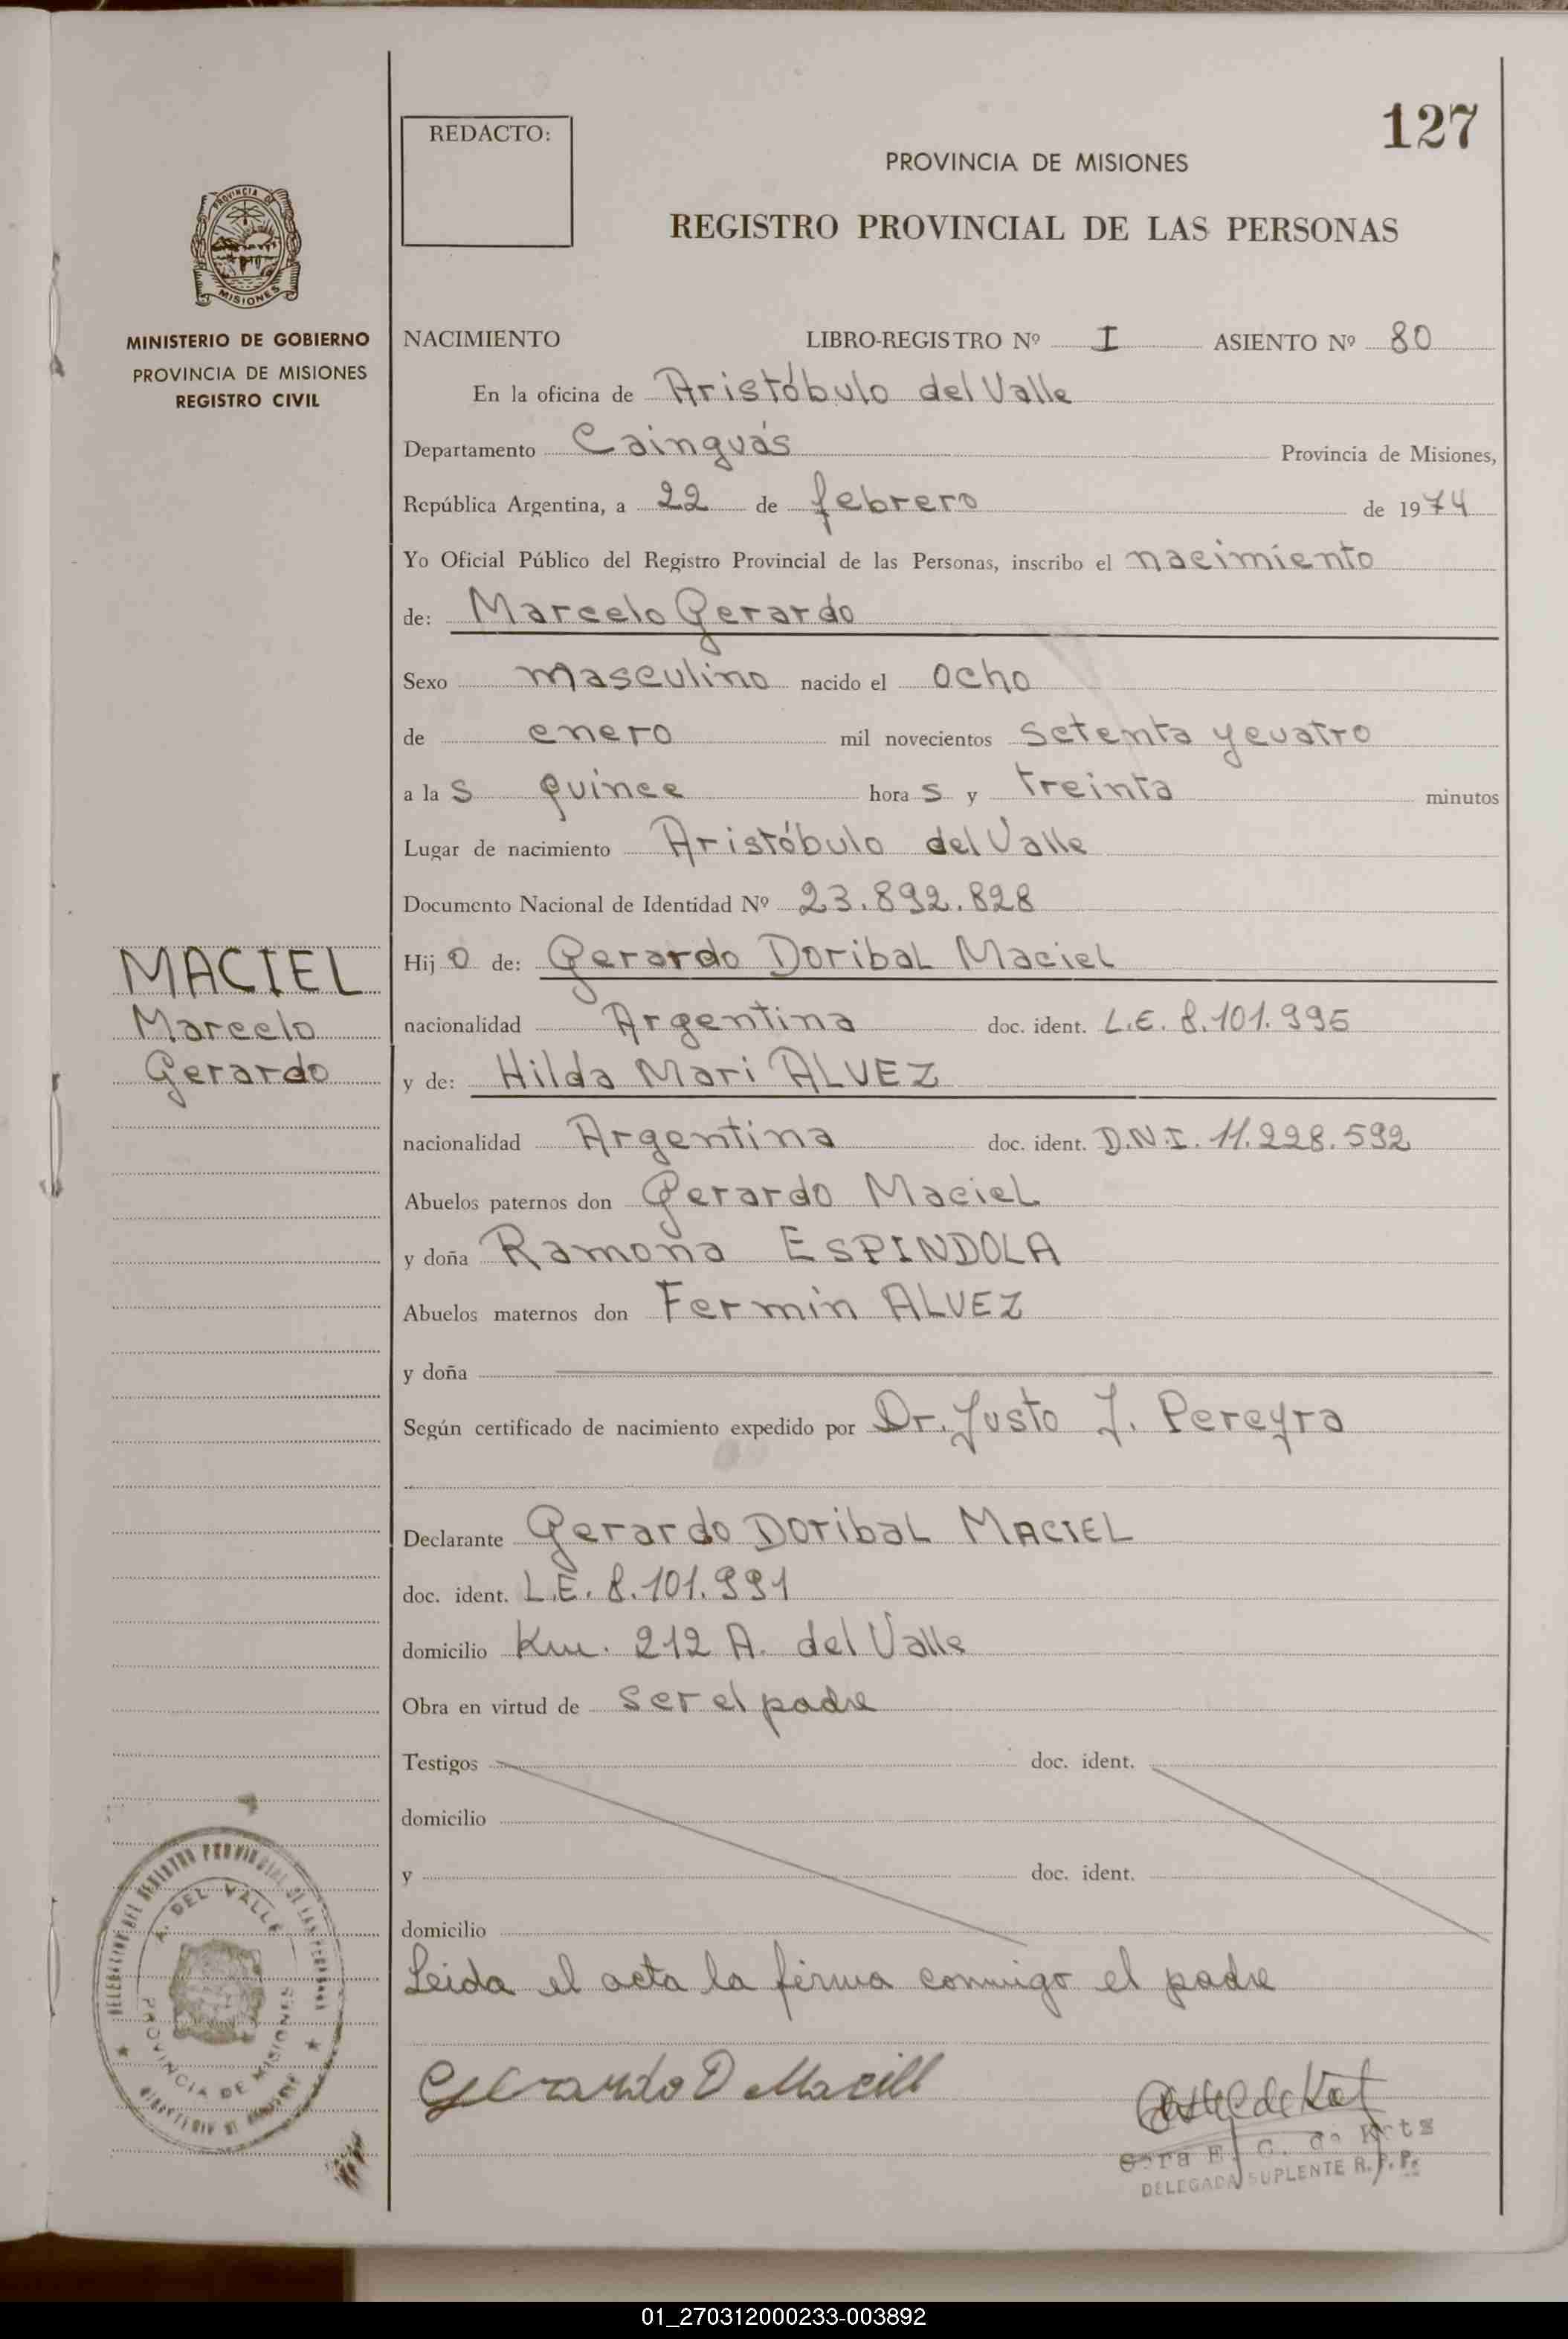 127
REDACTO:
PROVINCIA DE MISIONES
REGISTRO PROVINCIAL DE LAS PERSONAS
PROVINCIA DE
MISIONES
MINISTERIO DE GOBIERNO
PROVINCIA DE MISIONES
REGISTRO CIVIL
NACIMIENTO LIBRO-REGISTRO Nº I ASIENTO Nº 80
En la oficina de Aristóbulo del Valle
Departamento Cainguás Provincia de Misiones,
República Argentina, a 22 de febrero de 1974
Yo Oficial Público del Registro Provincial de las Personas, inscribo el nacimiento
de: Marcelo Gerardo
Sexo masculino nacido el ocho
de enero mil novecientos setenta y cuatro
a las quince horas y treinta minutos
Lugar de nacimiento Aristóbulo del Valle
Documento Nacional de Identidad Nº 23.892.828
MACIEL
Marcelo
Gerardo
Hijo de: Gerardo Doribal Maciel
nacionalidad Argentina doc. ident. L.E. 8.101.995
y de: Hilda Mari ALVEZ
nacionalidad Argentina doc. ident. D.N.I. 11.228.592
Abuelos paternos don Gerardo Maciel
y doña Ramona ESPINDOLA
Abuelos maternos don Fermin ALVEZ
y doña
Según certificado de nacimiento expedido por Dr. Justo J. Pereyra
Declarante Gerardo Doribal MACIEL
doc. ident. L.E. 8.101.991
domicilio Km. 212 A. del Valle
Obra en virtud de ser el padre
Testigos doc. ident.
domicilio
y doc. ident.
domicilio
Leida el acta la firma conmigo el padre
DELEGACION DEL REGISTRO PROVINCIAL DE LAS PERSONAS
A. DEL VALLE
PROVINCIA DE MISIONES
Gerardo D Maciell
E. C. de Kots
DELEGADA SUPLENTE R.P.P.
01_270312000233-003892